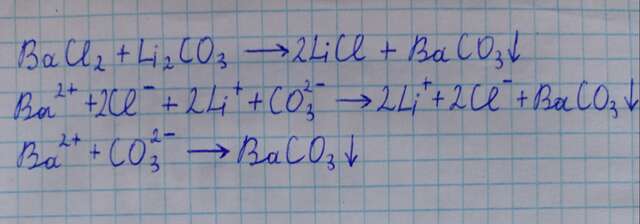 BaCl₂ + Li₂CO₃ → 2LiCl + BaCO₃↓
Ba²⁺ + 2Cl⁻ + 2Li⁺ + CO₃²⁻ → 2Li⁺ + 2Cl⁻ + BaCO₃↓
Ba²⁺ + CO₃²⁻ → BaCO₃↓